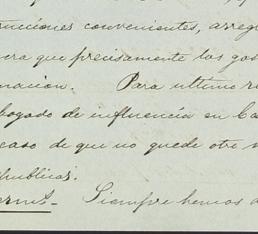 rucciones convenientes, arreg
era que precisamente los gas
nacion. Para ultimo r
bogado de influencia en Ca
caso de que no quede otro
publicas.
Siempre hemos d